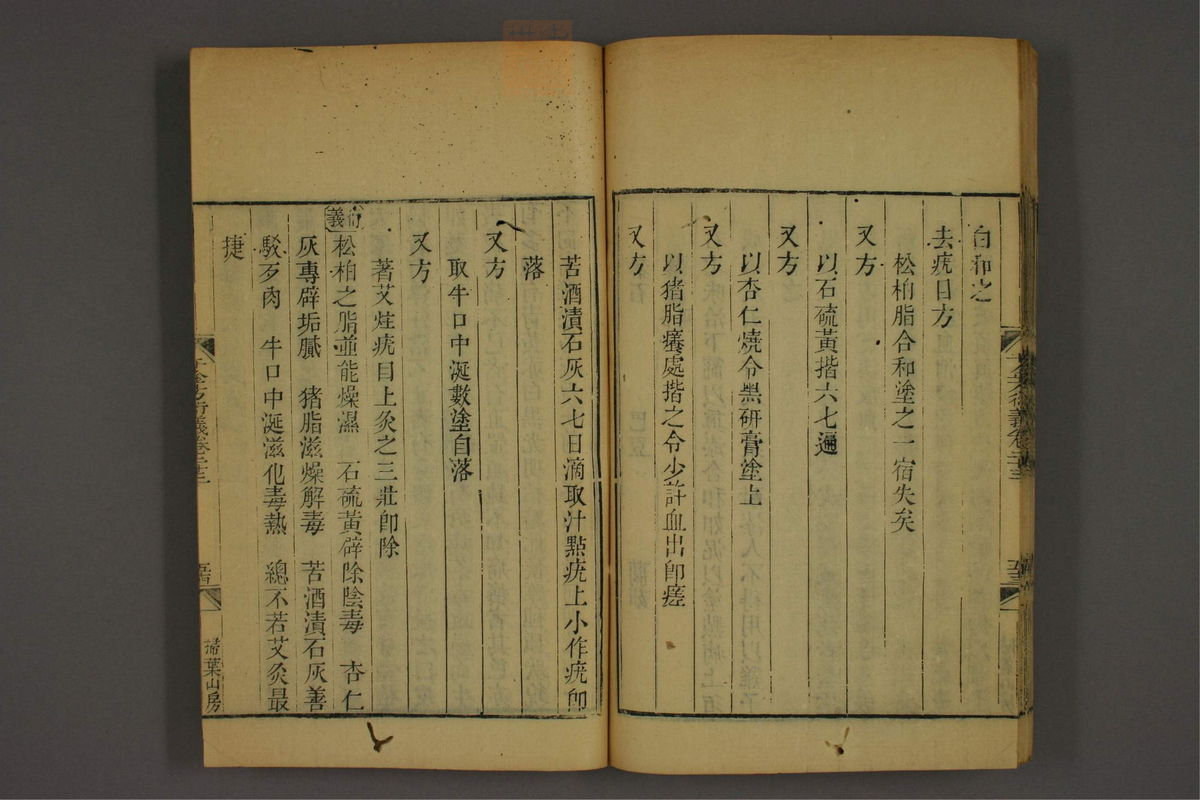 白和之
去疣目方
松柏脂合和塗之一宿失矣
又方
以石硫黃揩六七遍
又方
以杏仁燒令黑研膏塗上
又方
以猪脂癢處揩之令少許血出卽瘥
又方
苦酒漬石灰六七日滴取汁點疣上小作疣卽
落
又方
取牛口中涎數塗自落
又方
著艾炷疣目上灸之三壯卽除
衍義
松柏之脂並能燥濕 石硫黃辟除陰毒 杏仁
灰專辟垢膩 猪脂滋燥解毒 苦酒漬石灰善
駁歹肉 牛口中涎滋化毒熱 總不若艾灸最
捷
千金方衍義卷二十三
掃葉山房